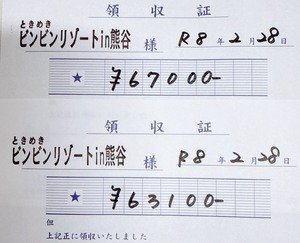 領収証
ときめき
ビンビンリゾートin熊谷 様 R8年2月28日
★ ¥67000-
領収証
ときめき
ビンビンリゾートin熊谷 様 R8年2月28日
★ ¥63100-
但
上記正に領収いたしました